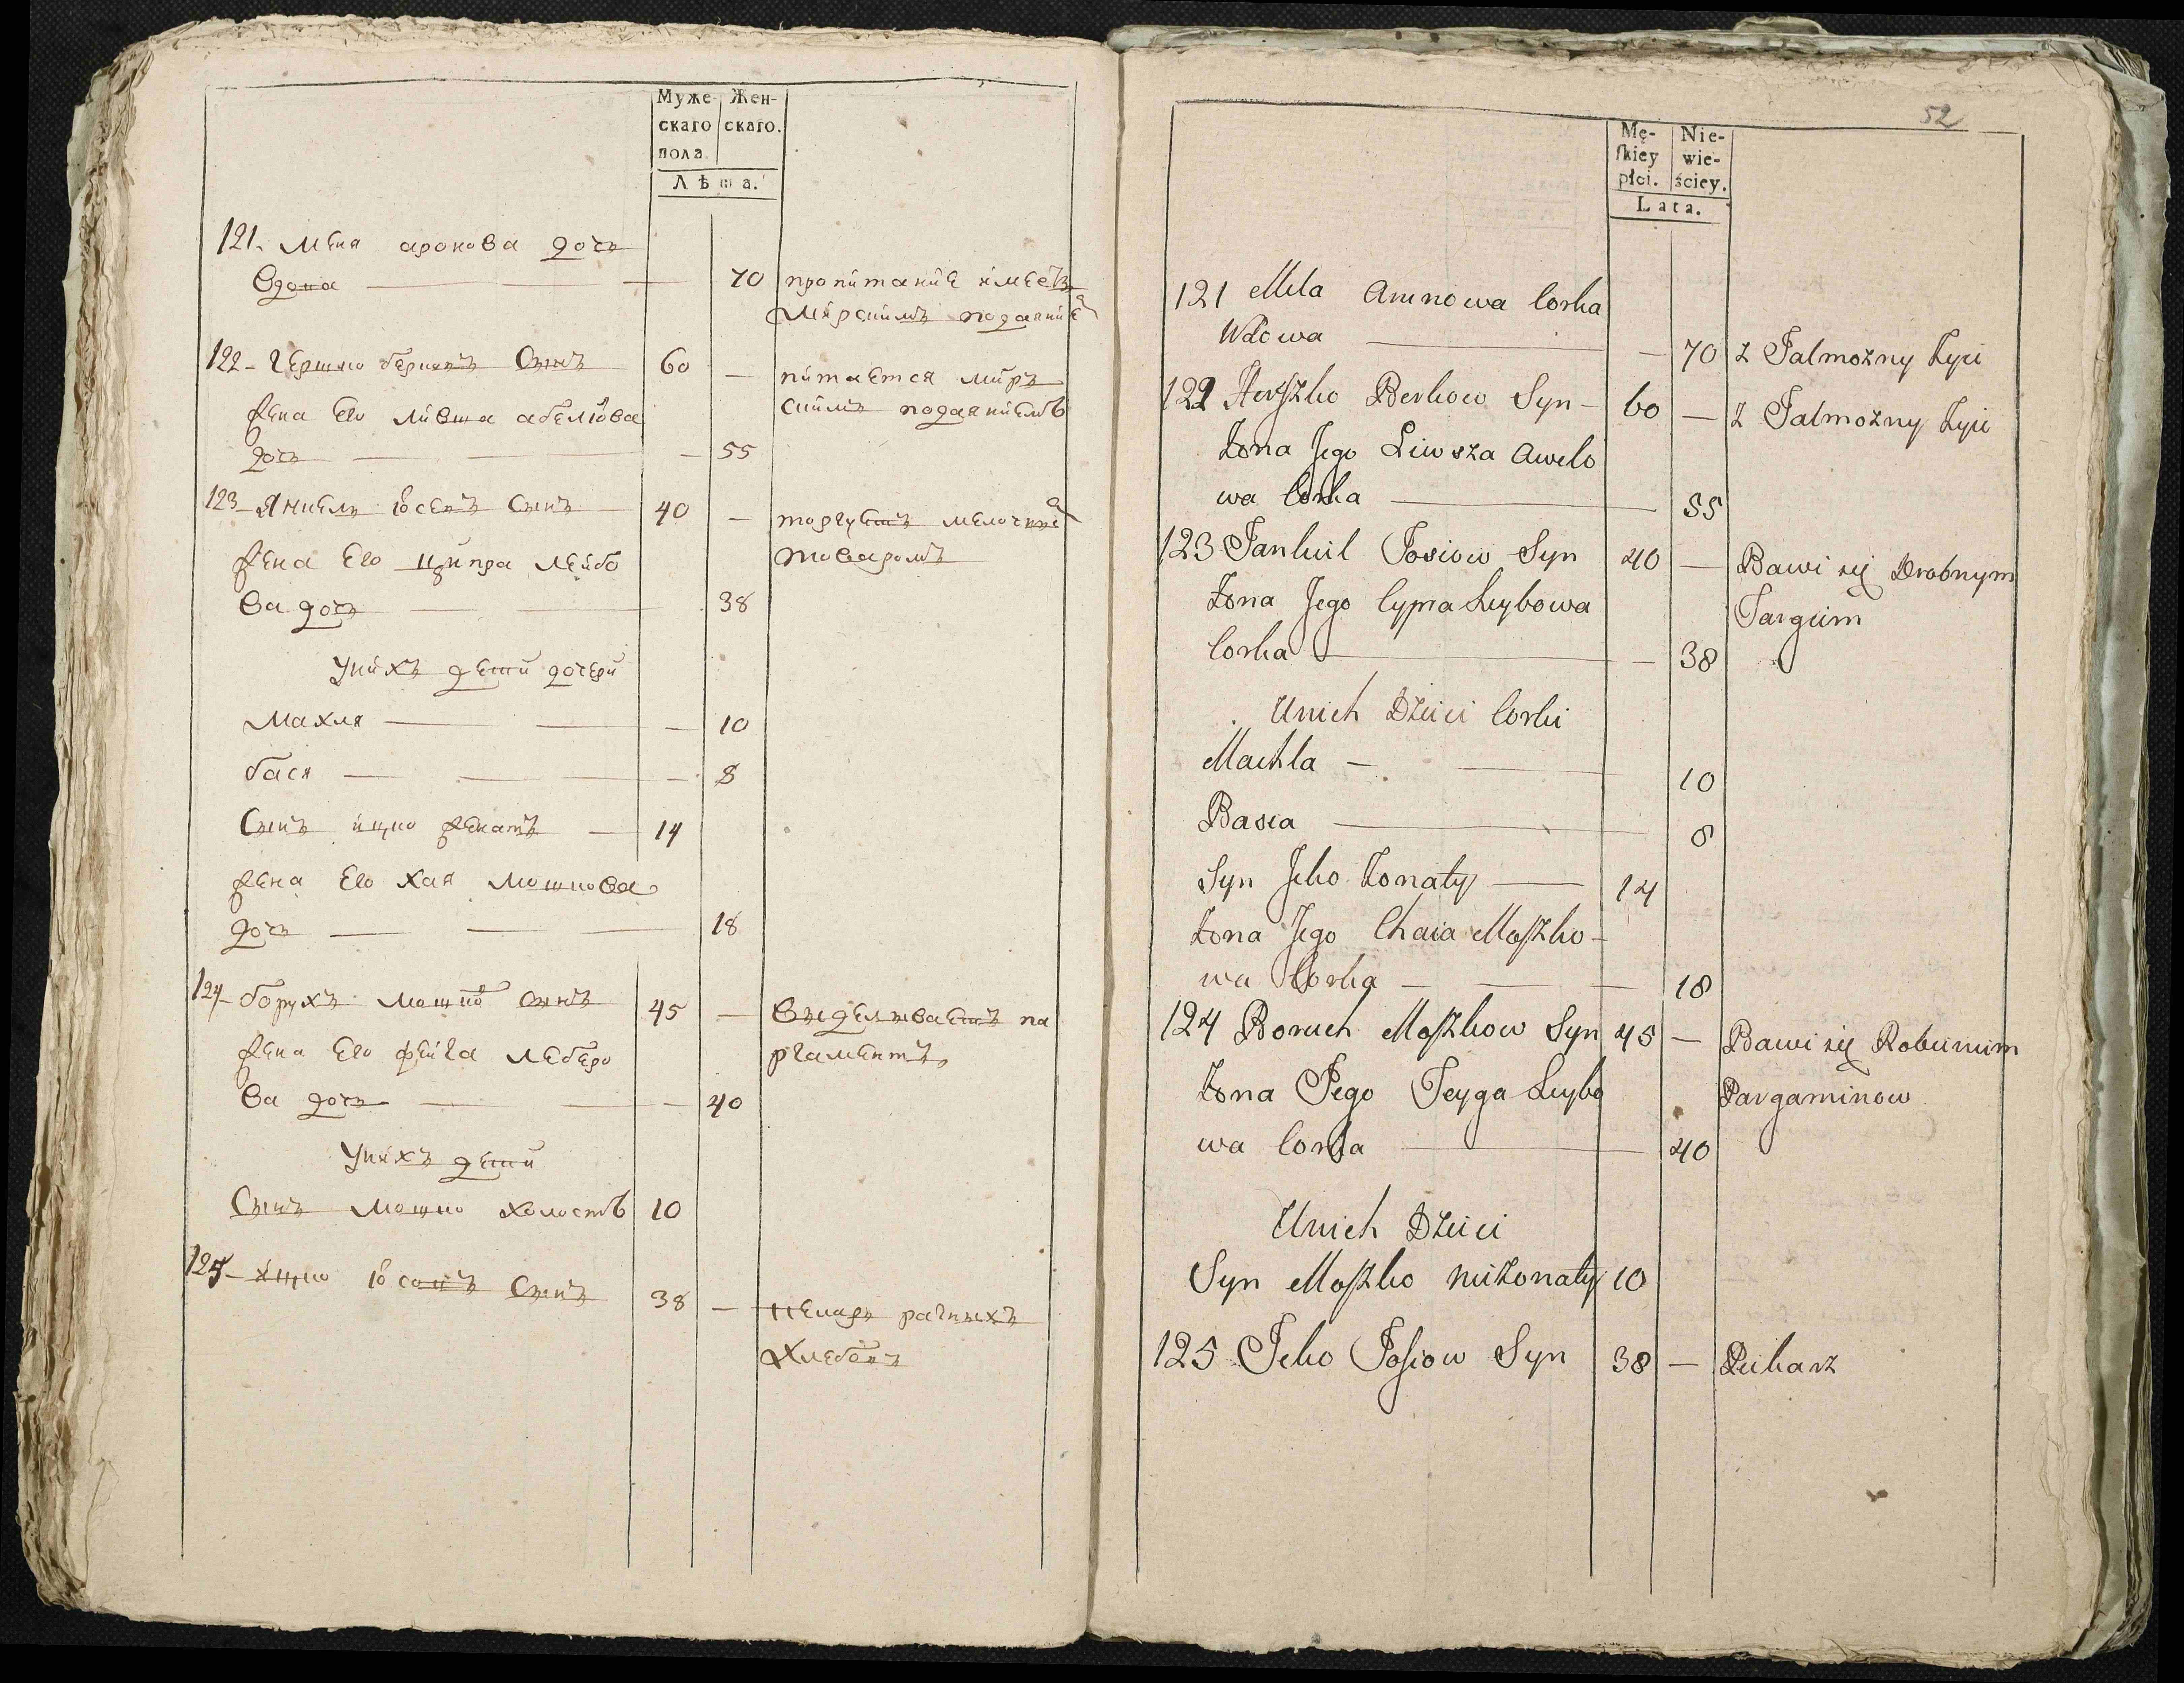 Муже- Жен-
скаго скаго.
пола.
Лѣта.
121. Меля аронова дочь
Вдова — 70 пропитание имеетъ
мирскимъ подаяние
122 - Гершко беркавъ Сынъ 60 — питается миръ
жена Его Лившa абелюва скимъ подаяниемъ
дочь — 55
123 - Янкель иосевъ Сынъ — 40 — торгуетъ мелочны
жена Его ципра лейбо товаромъ
ва дочь — 38
Унихъ дети дочери
Махля — 10
бася — 8
Сынъ ицко женатъ — 14
жена Его хая мошкова
дочь — 18
124 - борухъ мошко сынъ 45 — выделываетъ па
жена Его фейга леберо ргаментъ
ва дочь — 40
Унихъ дети
Сынъ мошко холостъ 10
125 - ицко иосовъ Сынъ 38 — пекарь
хлебовъ
52
Mę- Nie-
skiey wie-
płci. ściey.
Lata.
121 Mela Aronowa Corka
Wdowa — 70 z Jalmożny Żyie
122 Herszko Berkow Syn - 60 — z Jalmożny Żyie
Żona Jego Liwsza Awelo
wa Corka — 55
123 Jankiel Josiow Syn 40 — Bawi się Drobnym
Żona Jego Cypra Leybowa Targiem
Corka — 38
Unich Dzieci Corki
Machla — 10
Basia — 8
Syn Icko Żonaty — 14
Żona Jego Chaia Moszko-
wa Corka — 18
124 Boruch Moszkow Syn 45 — Bawi się Robieniem
Żona Jego Feyga Leybo Pargaminow
wa Corka — 40
Unich Dzieci
Syn Moszko nieżonaty 10
125 Icko Josiow Syn 38 — Piekarz